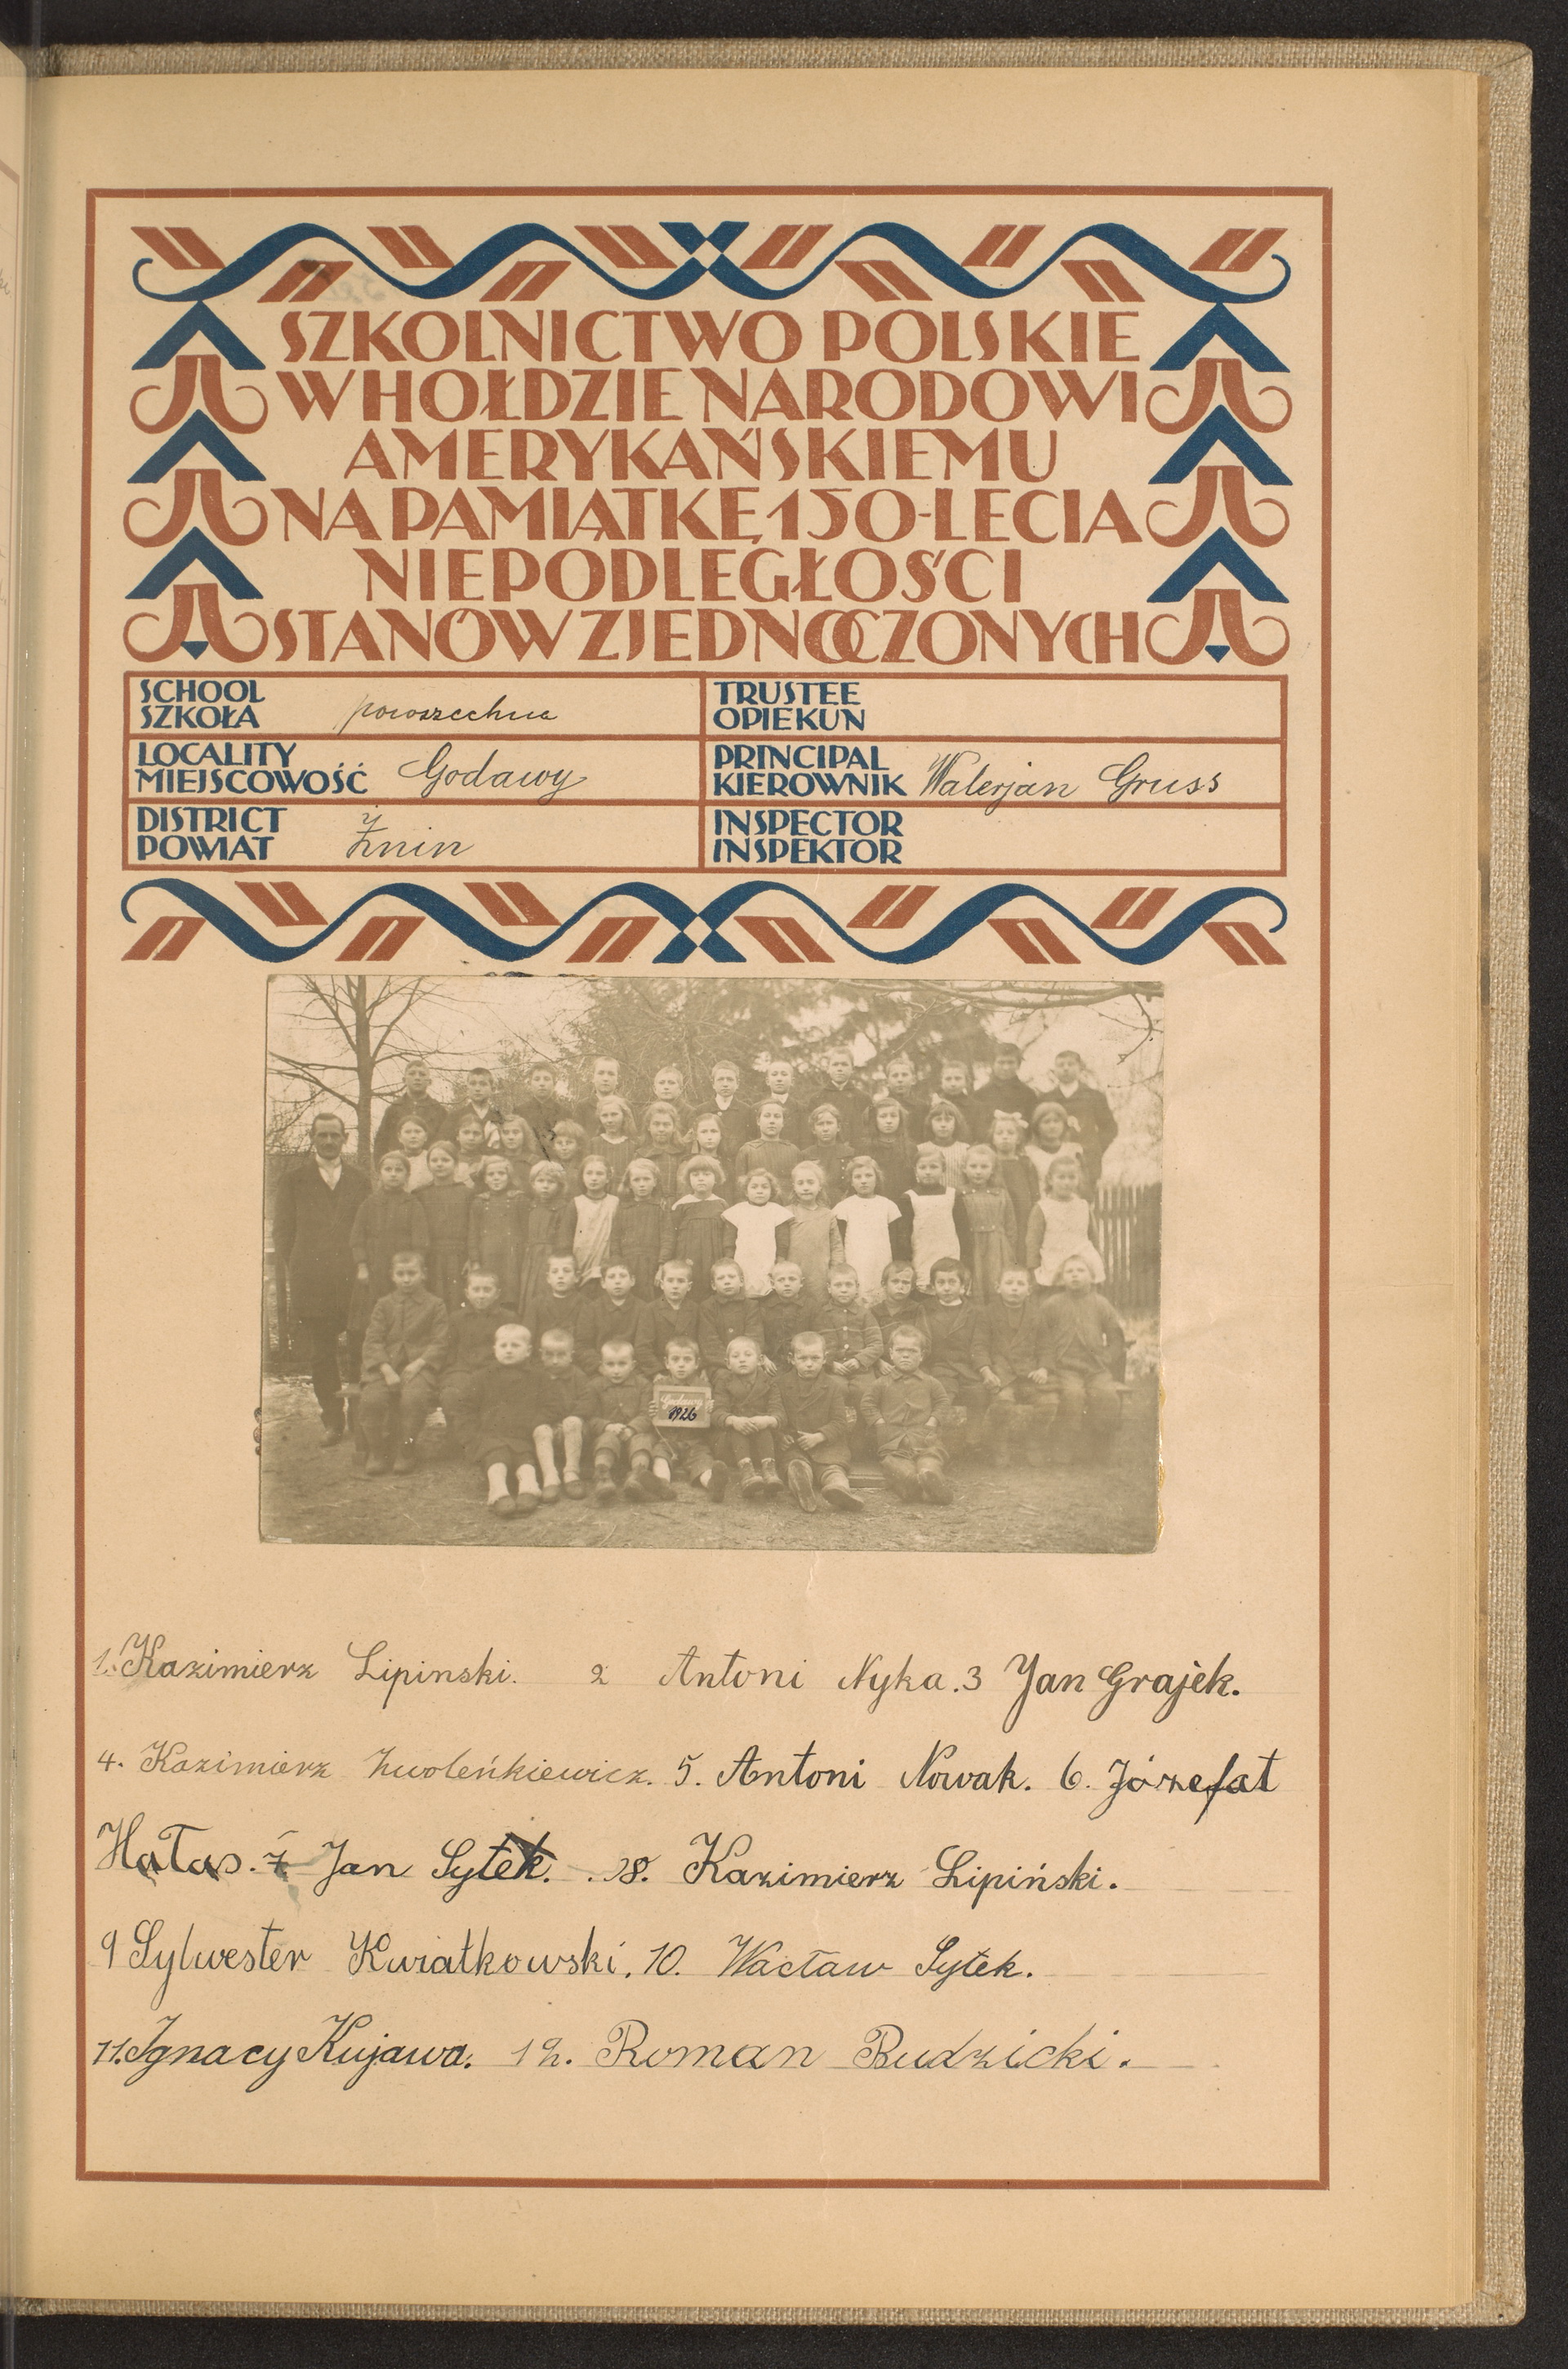 SZKOLNICTWO POLSKIE
W HOŁDZIE NARODOWI
AMERYKAŃSKIEMU
NA PAMIĄTKĘ 150-LECIA
NIEPODLEGŁOŚCI
STANÓW ZJEDNOCZONYCH
SCHOOL
SZKOŁA powszechna
TRUSTEE
OPIEKUN
LOCALITY
MIEJSCOWOŚĆ Godawy
PRINCIPAL
KIEROWNIK Walerjan Gruss
DISTRICT
POWIAT Żnin
INSPECTOR
INSPEKTOR
Godawy
1926
1. Kazimierz Lipinski. 2 Antoni Nyka. 3 Jan Grajek.
4. Kazimierz Zwoleńkiewicz. 5. Antoni Nowak. 6. Józefat
Hałas. 7 Jan Sytek. 8. Kazimierz Lipiński.
9 Sylwester Kwiatkowski. 10. Wacław Sytek.
11. Ignacy Kujawa. 12. Roman Rudzicki.